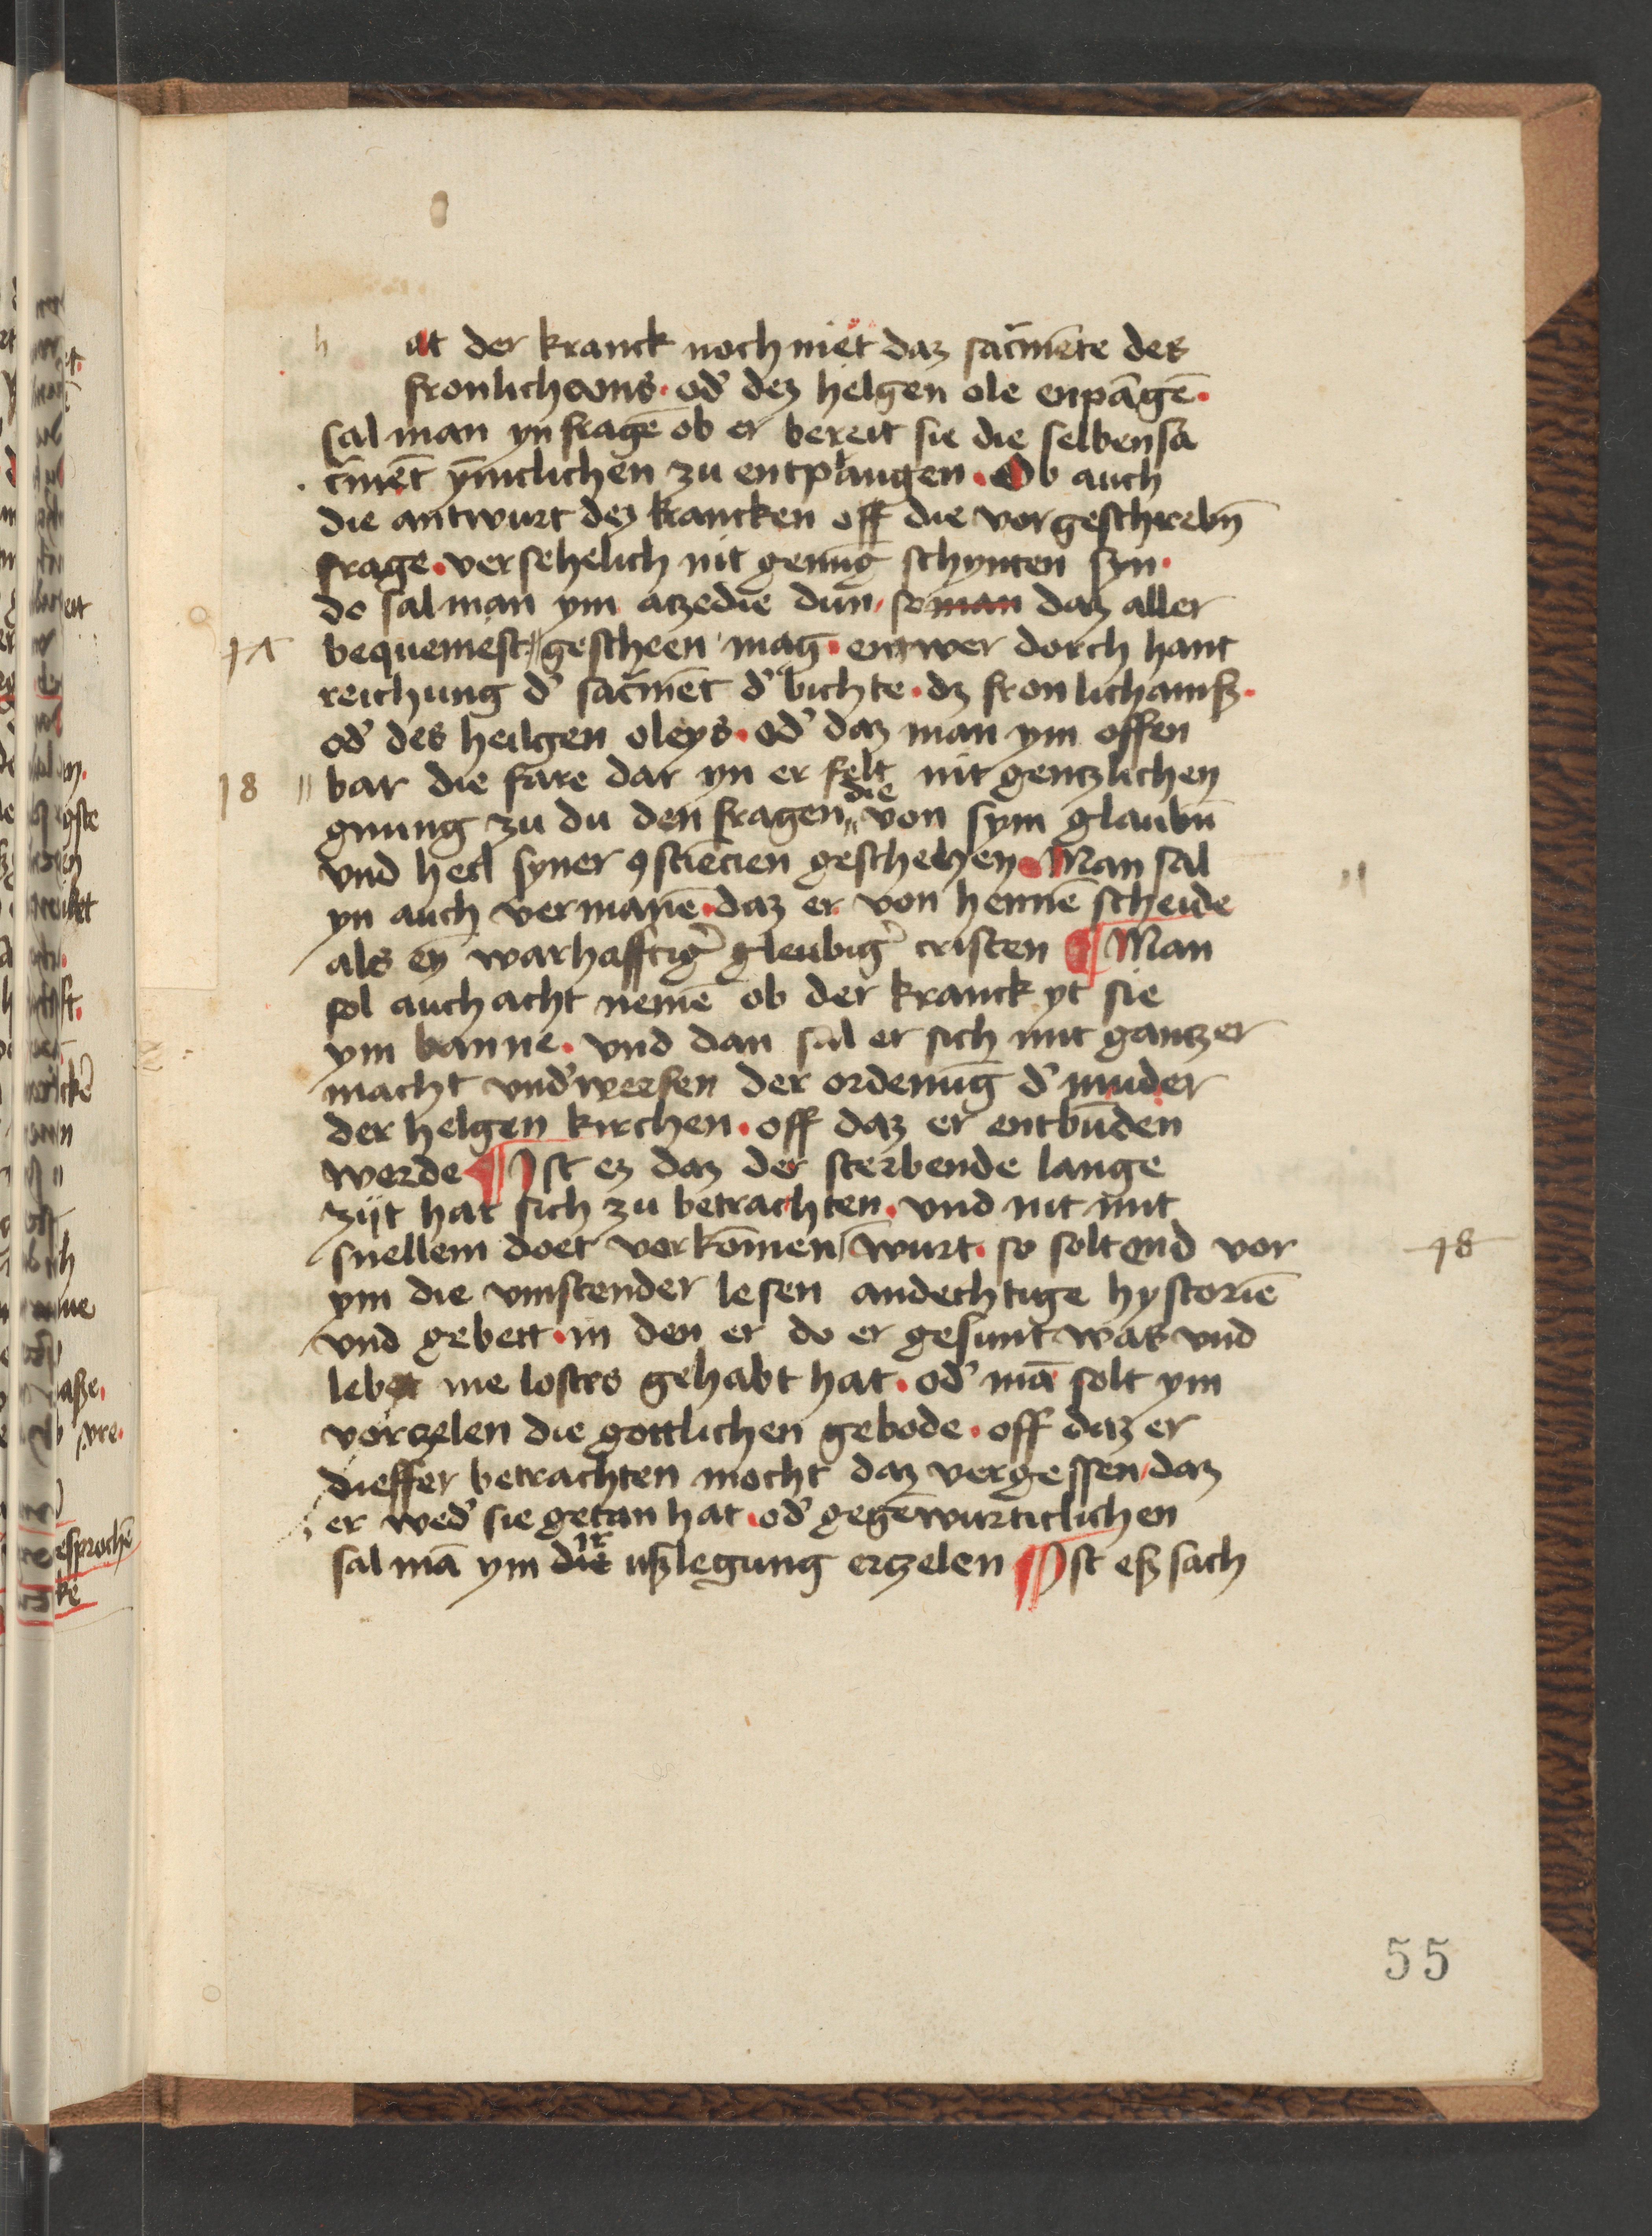 h at der kranck noch niet daz sac̄mēte des
fronlichams · od̕ dez helgen ole enpāgē ·
sal man yn fragē ob er bereit sie die selben sa
c̄mēt ynniclichen zu entpfangen · Ob auch
die antwurt dez krancken off die vorgeschrebn̄
frage · versehelich nit genūg schynten syn ·
do sal man ym atzedie dun / so man daz aller
17 bequemest gescheen mag · entwer dorch hant
reichung d̕ sac̄mēt d̕ bichte · dz fron lichamß ·
od̕ des heilgen oleys · od̕ daz man ym offen
18 " bar die fare dar yn er felt nit gentzlichen
die
gnung zu du den fragen " von sym glaubn̄
vnd heil syner ꝯsciēcien geschehen · Man sal
yn auch vermanē · daz er von hennē scheide
als en̄ warhafftig̕ gleubig̕ cristen ¶ Man
sol auch acht nemē ob der kranck yt sie
ym banne · vnd dan sal er sich mit gantzer
macht vnd̕werfen der ordenūg d̕ muder
der helgen kirchen · off daz er entbūden
werde ¶ Ist ez daz der sterbende lange
zijt hat sich zu betrachten · vnd nit mit
snellem doet vorkōmen wurt · so solt end vor 18
ym die vmstender lesen andechtige hystoriē
vnd gebett · in den er do er gesunt was vnd
lebet me lostes gehabt hat · od̕ mā solt ym
vorczelen die gottlichen gebode · off daz er
dieffer betrachten mocht daz vergessen / daz
er wed̕ sie getan hat · od̕ gegēwurticlichen
ir
sal mā ym die ußlegung erczelen ¶ Ist eß sach
55